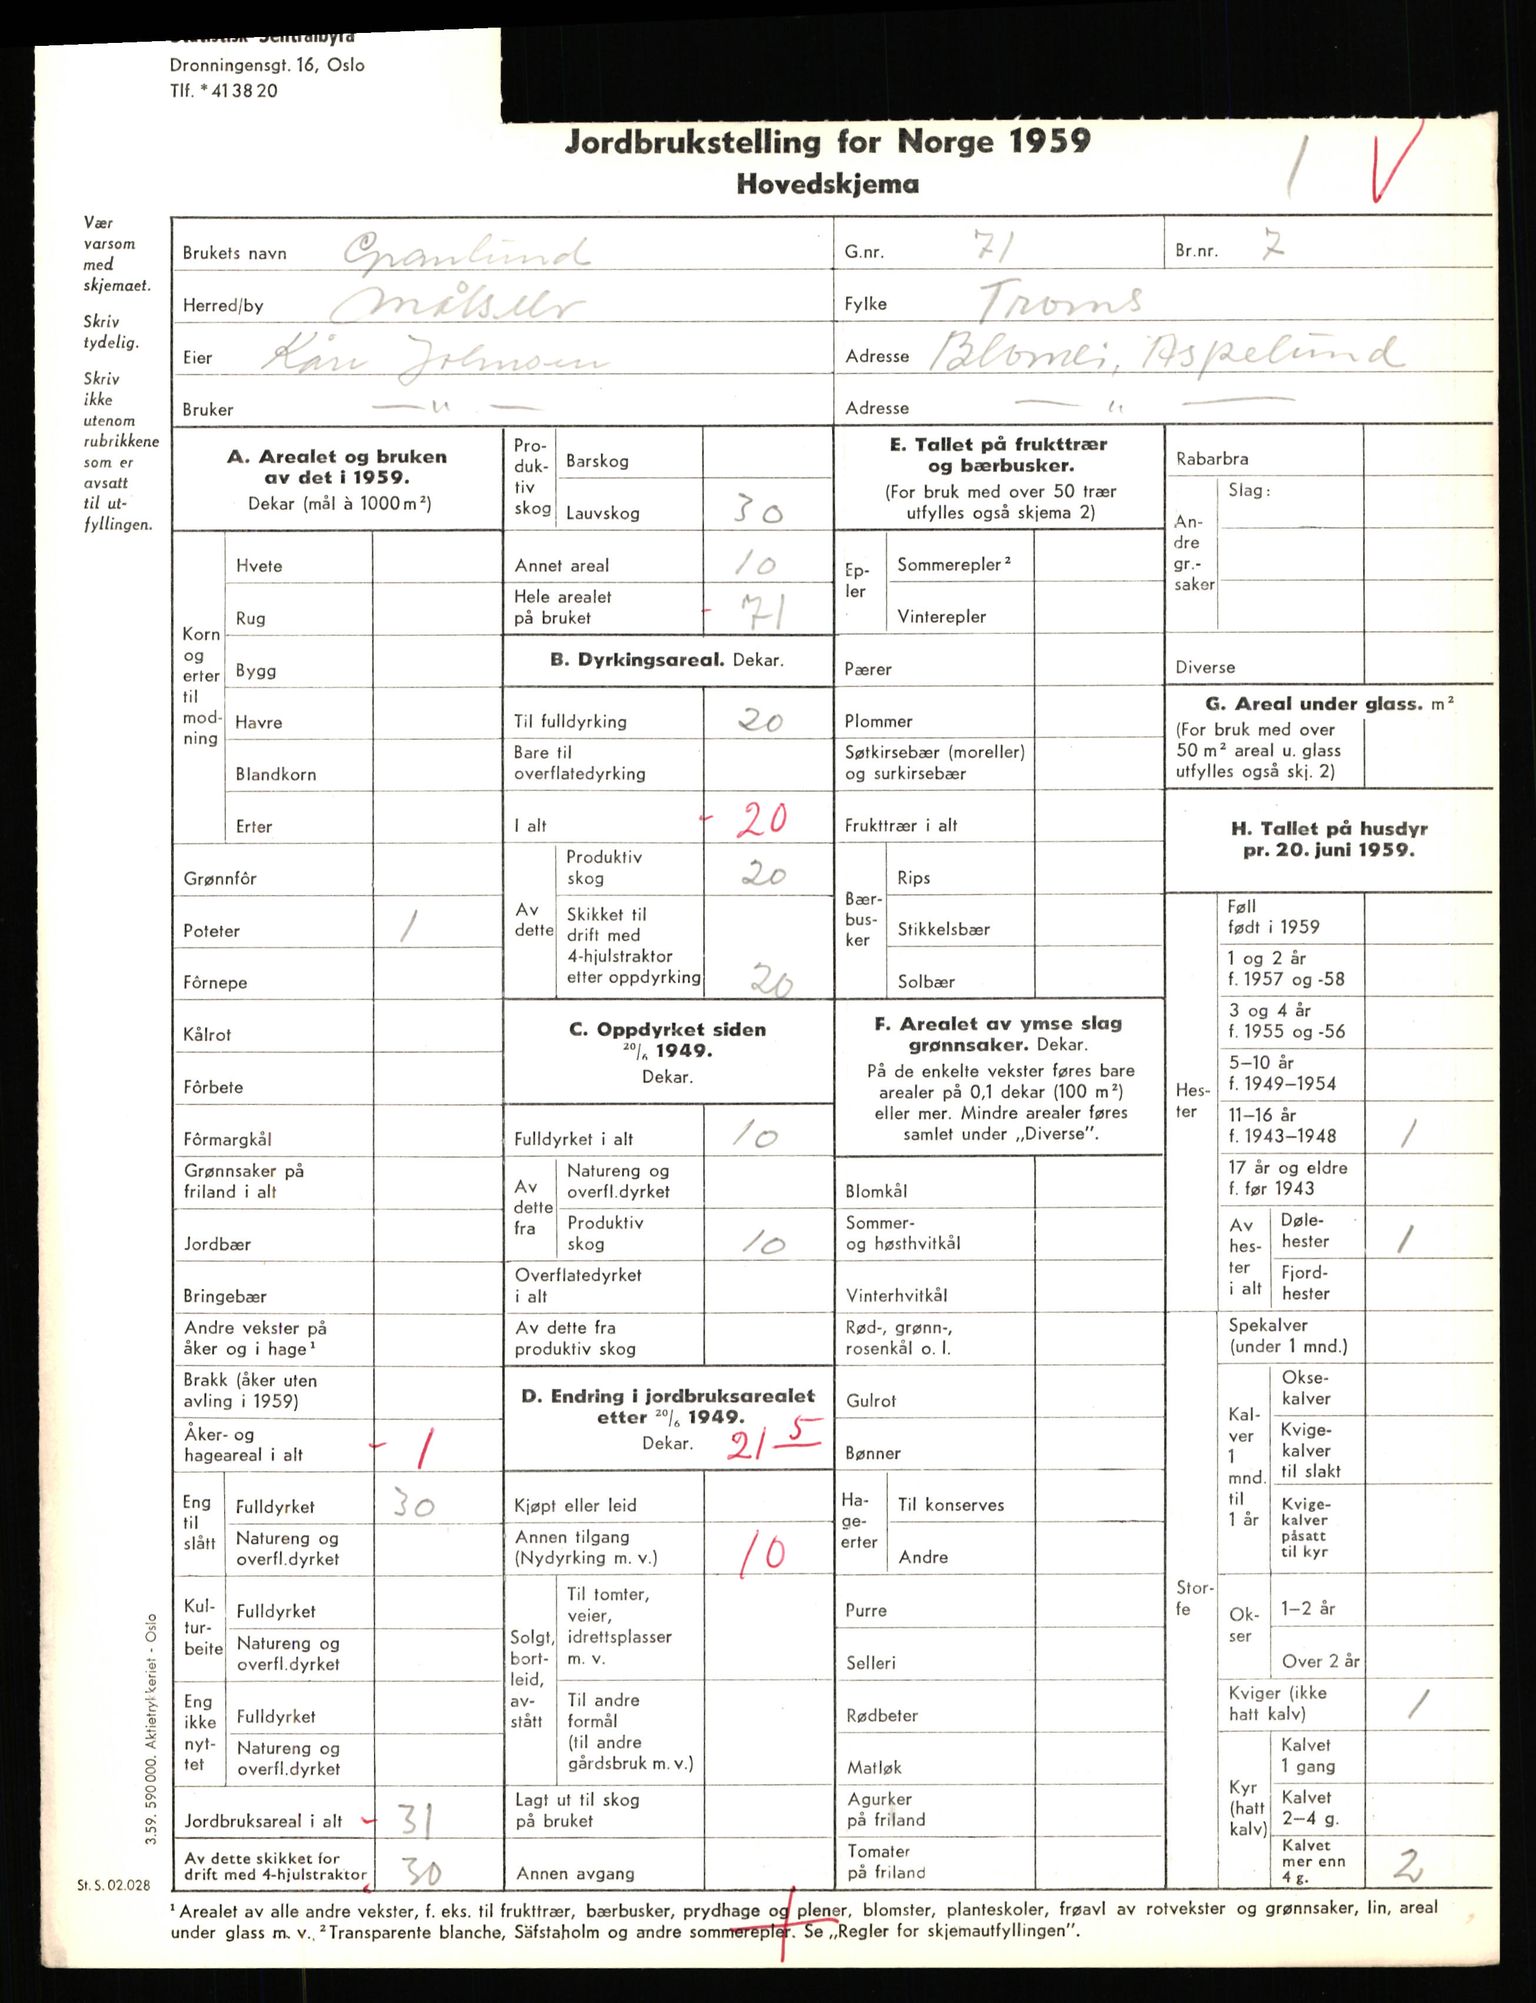 Dronningensgt. 16, Oslo
Tlf. * 41 38 20
Jordbrukstelling for Norge 1959
Hovedskjema
1 V
Vær
varsom
med
skjemaet.
Skriv
tydelig.
Skriv
ikke
utenom
rubrikkene
som er
avsatt
til ut-
fyllingen.
Brukets navn Granlund
G.nr. 71
Br.nr. 7
Herred/by Målselv
Fylke Troms
Eier Kåre Johnsen
Adresse Blomli, Aspelund
Bruker — " —
Adresse — " —
A. Arealet og bruken
av det i 1959.
Dekar (mål à 1000 m²)
Korn
og
erter
til
mod-
ning
Hvete
Rug
Bygg
Havre
Blandkorn
Erter
Grønnfôr
Poteter 1
Fôrnepe
Kålrot
Fôrbete
Fôrmargkål
Grønnsaker på
friland i alt
Jordbær
Bringebær
Andre vekster på
åker og i hage ¹
Brakk (åker uten
avling i 1959)
Åker- og
hageareal i alt - 1
Eng
til
slått
Fulldyrket 30
Natureng og
overfl.dyrket
Kul-
tur-
beite
Fulldyrket
Natureng og
overfl.dyrket
Eng
ikke
nyt-
tet
Fulldyrket
Natureng og
overfl.dyrket
Jordbruksareal i alt - 31
Av dette skikket for
drift med 4-hjulstraktor 30
Pro-
duk-
tiv
skog
Barskog
Lauvskog 30
Annet areal 10
Hele arealet
på bruket - 71
B. Dyrkingsareal. Dekar.
Til fulldyrking 20
Bare til
overflatedyrking
I alt - 20
Av
dette
Produktiv
skog 20
Skikket til
drift med
4-hjulstraktor
etter oppdyrking 20
C. Oppdyrket siden
20/6 1949.
Dekar.
Fulldyrket i alt 10
Av
dette
fra
Natureng og
overfl.dyrket
Produktiv
skog 10
Overflatedyrket
i alt
Av dette fra
produktiv skog
D. Endring i jordbruksarealet
etter 20/6 1949.
Dekar. 21 5
Kjøpt eller leid
Annen tilgang
(Nydyrking m. v.) 10
Solgt,
bort-
leid,
av-
stått
Til tomter,
veier,
idrettsplasser
m. v.
Til andre
formål
(til andre
gårdsbruk m. v.)
Lagt ut til skog
på bruket
Annen avgang
E. Tallet på frukttrær
og bærbusker.
(For bruk med over 50 trær
utfylles også skjema 2)
Ep-
ler
Sommerepler ²
Vinterepler
Pærer
Plommer
Søtkirsebær (moreller)
og surkirsebær
Frukttrær i alt
Bær-
bus-
ker
Rips
Stikkelsbær
Solbær
F. Arealet av ymse slag
grønnsaker. Dekar.
På de enkelte vekster føres bare
arealer på 0,1 dekar (100 m²)
eller mer. Mindre arealer føres
samlet under „Diverse”.
Blomkål
Sommer-
og høsthvitkål
Vinterhvitkål
Rød-, grønn-,
rosenkål o. l.
Gulrot
Bønner
Ha-
ge-
erter
Til konserves
Andre
Purre
Selleri
Rødbeter
Matløk
Agurker
på friland
Tomater
på friland
Rabarbra
An-
dre
gr.-
saker
Slag:
Diverse
G. Areal under glass. m²
(For bruk med over
50 m² areal u. glass
utfylles også skj. 2)
H. Tallet på husdyr
pr. 20. juni 1959.
Hes-
ter
Føll
født i 1959
1 og 2 år
f. 1957 og -58
3 og 4 år
f. 1955 og -56
5–10 år
f. 1949–1954
11–16 år
f. 1943–1948 1
17 år og eldre
f. før 1943
Av
hes-
ter
i alt
Døle-
hester 1
Fjord-
hester
Stor-
fe
Spekalver
(under 1 mnd.)
Kal-
ver
1
mnd.
til
1 år
Okse-
kalver
Kvige-
kalver
til slakt
Kvige-
kalver
påsatt
til kyr
Ok-
ser
1–2 år
Over 2 år
Kviger (ikke
hatt kalv) 1
Kyr
(hatt
kalv)
Kalvet
1 gang
Kalvet
2–4 g.
Kalvet
mer enn
4 g. 2
3.59. 590 000. Aktietrykkeriet - Oslo
St. S. 02.028
¹ Arealet av alle andre vekster, f. eks. til frukttrær, bærbusker, prydhage og plener, blomster, planteskoler, frøavl av rotvekster og grønnsaker, lin, areal
under glass m. v. ² Transparente blanche, Säfstaholm og andre sommerepler. Se „Regler for skjemautfyllingen”.